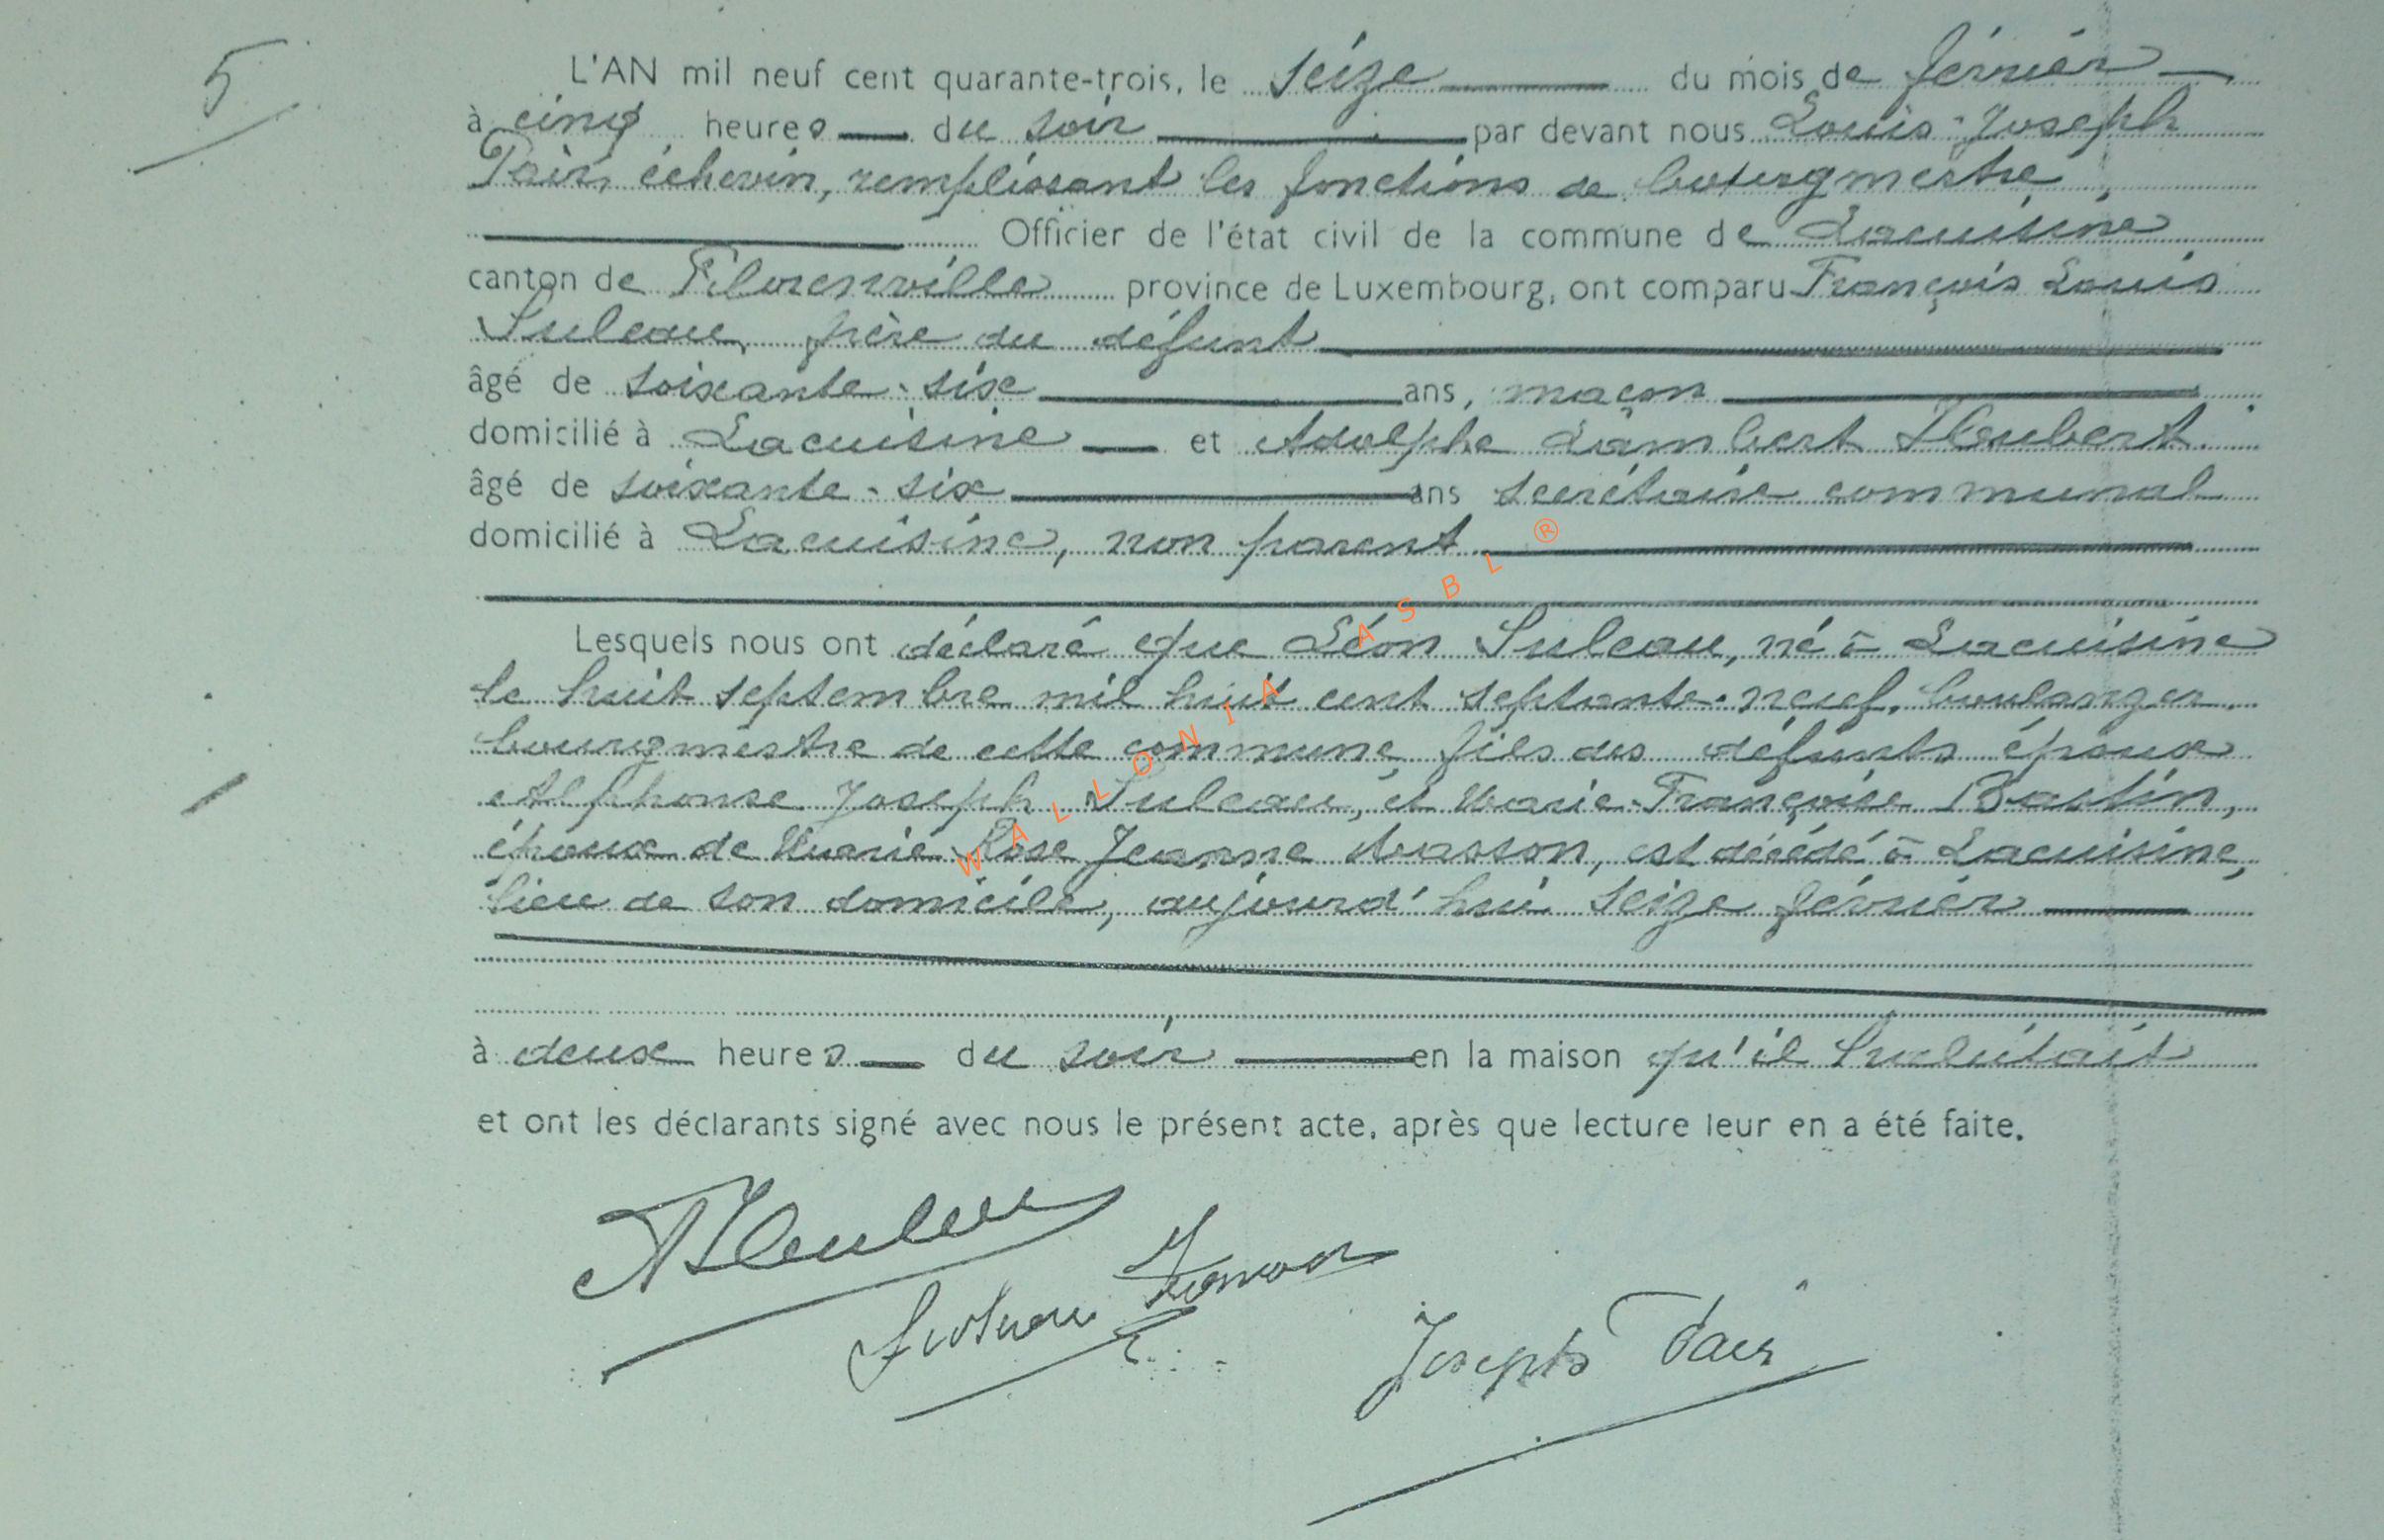 5
L'AN mil neuf cent quarante-trois, le seize du mois de février
à cinq heures du soir par devant nous Louis-Joseph
Pair, échevin, remplissant les fonctions de bourgmestre,
Officier de l'état civil de la commune de Lacuisine
canton de Florenville province de Luxembourg, ont comparu François Louis
Suleau, frère du défunt
âgé de soixante-six ans, maçon
domicilié à Lacuisine et Adolphe Lambert Heubert
âgé de soixante-six ans secrétaire communal
domicilié à Lacuisine, non parent
Lesquels nous ont déclaré que Léon Suleau, né à Lacuisine
le huit septembre mil huit cent septante-neuf, boulanger,
bourgmestre de cette commune, fils des défunts époux
Alphonse Joseph Suleau, et Marie-Françoise Bastin,
époux de Marie Rose Jeanne Masson, est décédé à Lacuisine,
lieu de son domicile, aujourd'hui seize février
à deux heures du soir en la maison qu'il habitait
et ont les déclarants signé avec nous le présent acte, après que lecture leur en a été faite.
Joseph Pair
WALLONIA ASBL ®